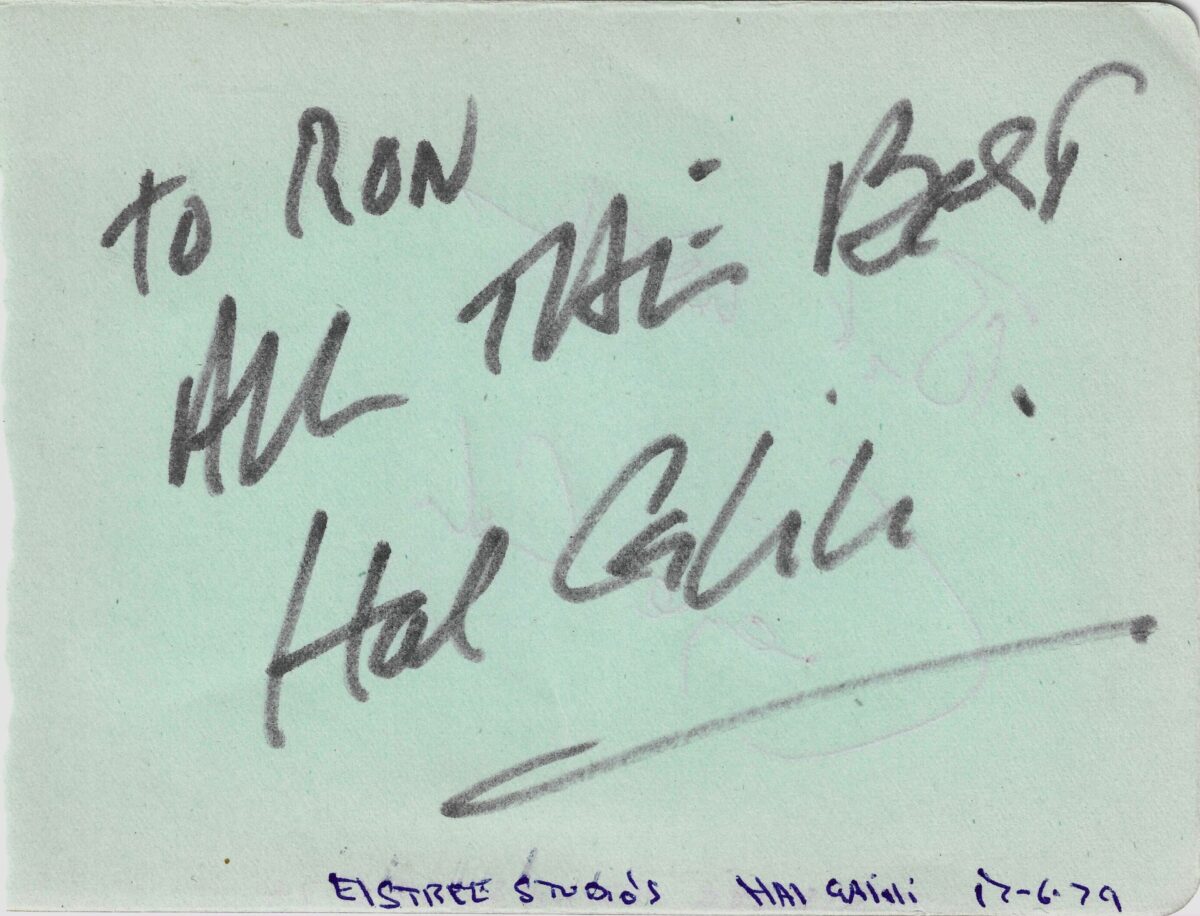 TO RON
ALL THE BEST.
Hal Galili
ElSTREE STUDIO'S HAl GAlili 17-6-79